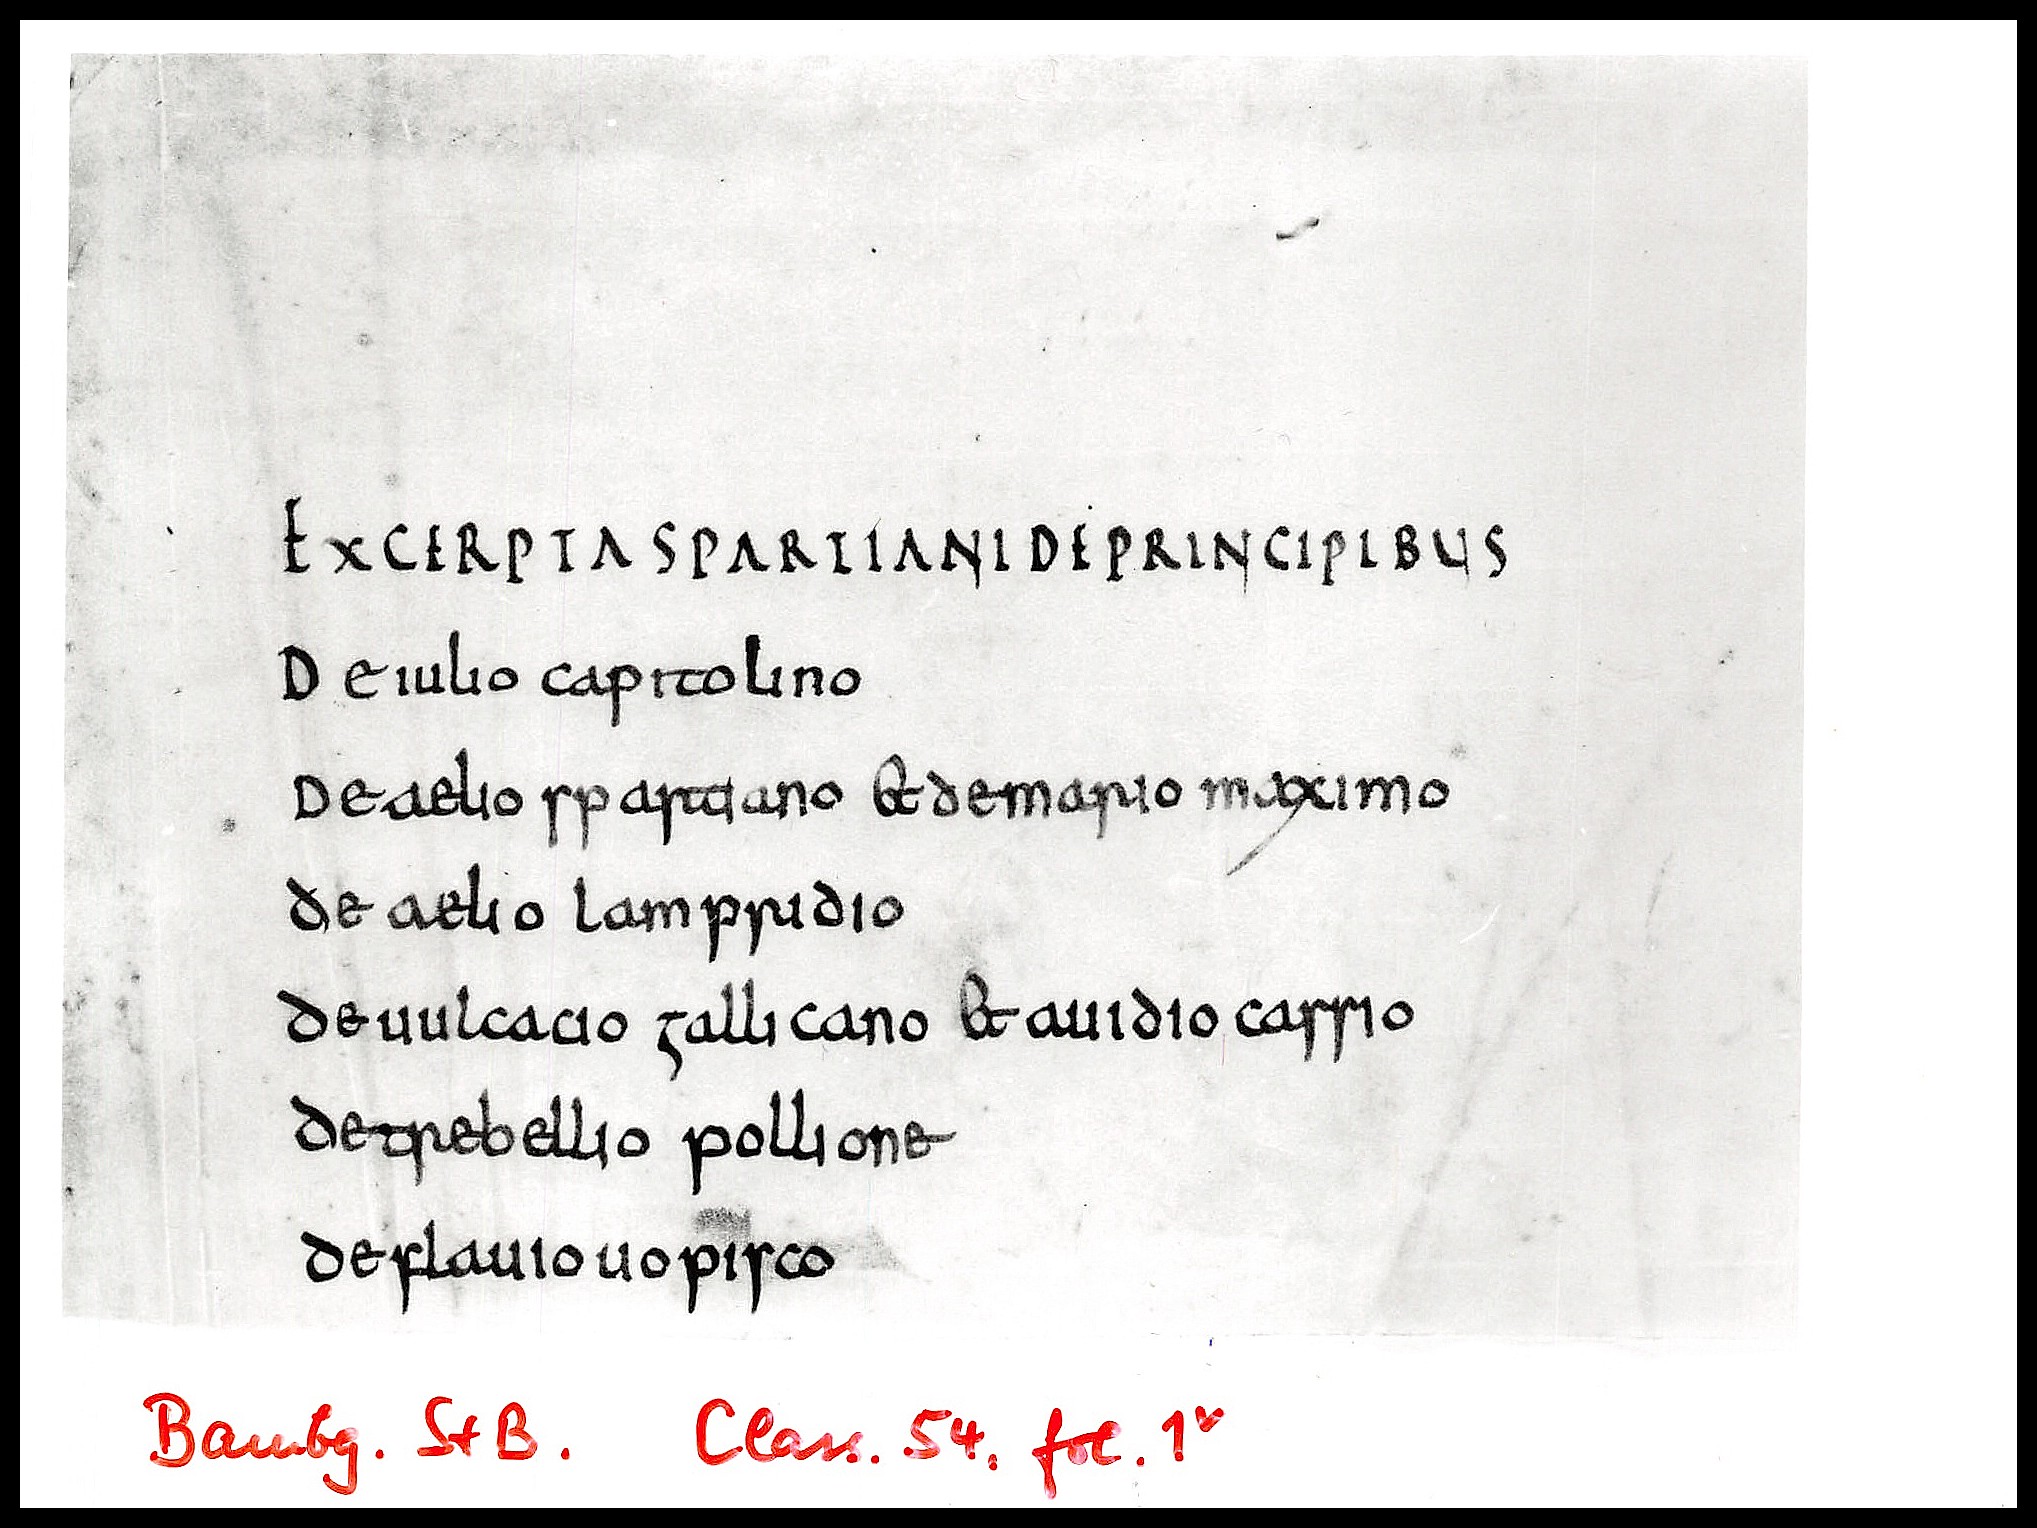 EXCERPTA SPARTIANI DE PRINCIPIBUS
De iulio capitolino
De aelio spartiano & de mario maximo
de aelio lampridio
de uulcacio gallicano & auidio cassio
de trebellio pollione
de flauio uopisco
Bambg. StB. Class. 54, fol. 1v